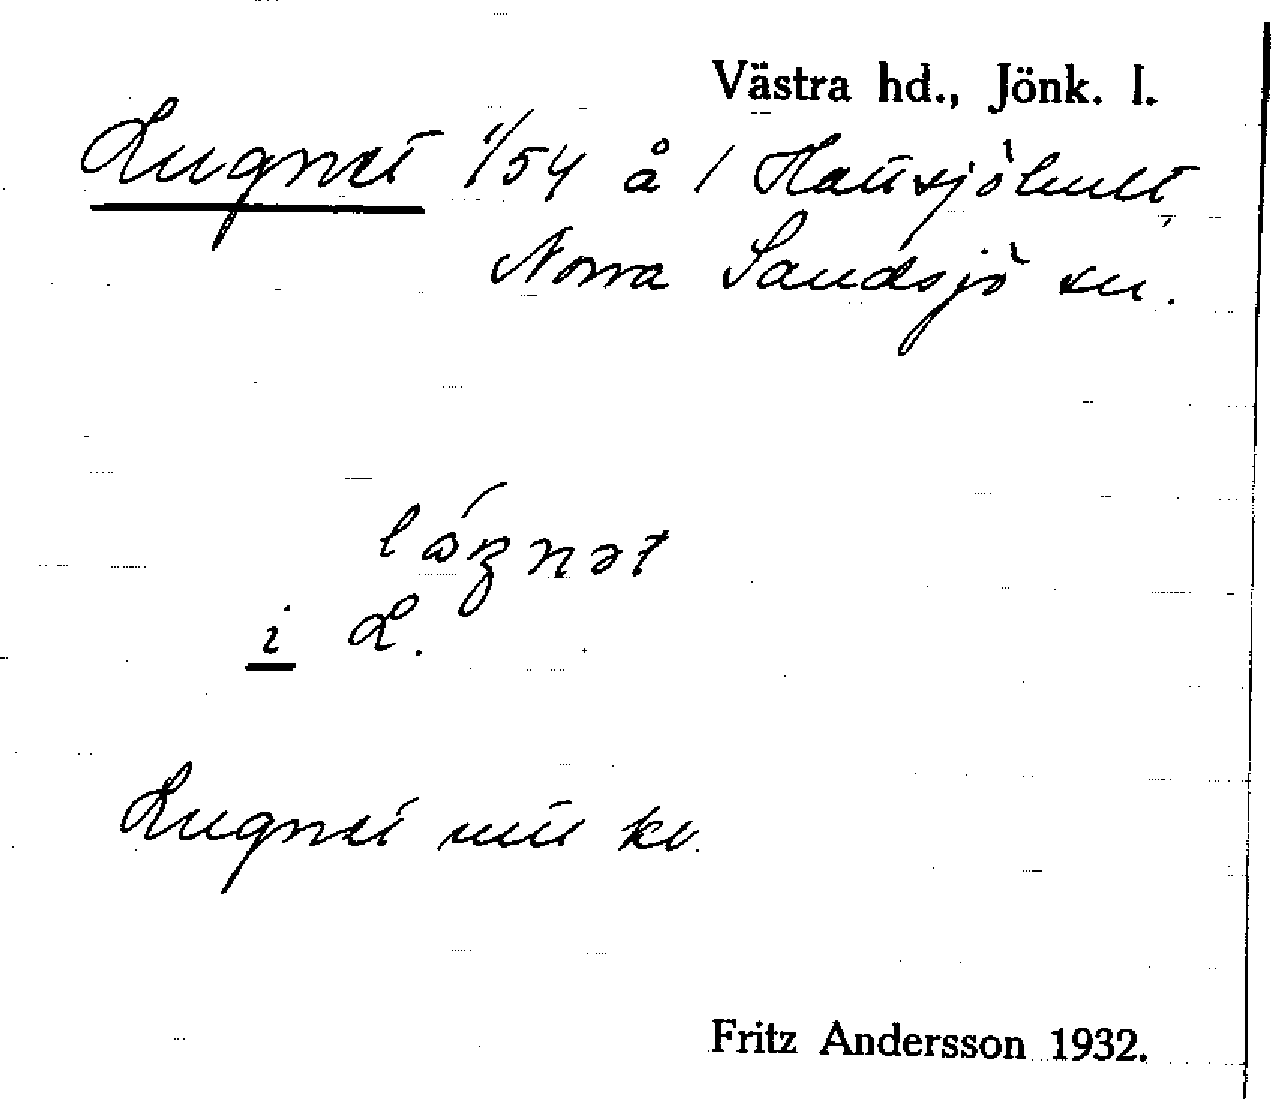 Västra hd., Jönk. l.
Lugnet 1/54 å 1 Hattsjöhult,
Norra Sandsjö sn.
i L.
Lugnet mtl kv.
Fritz Andersson 1932.